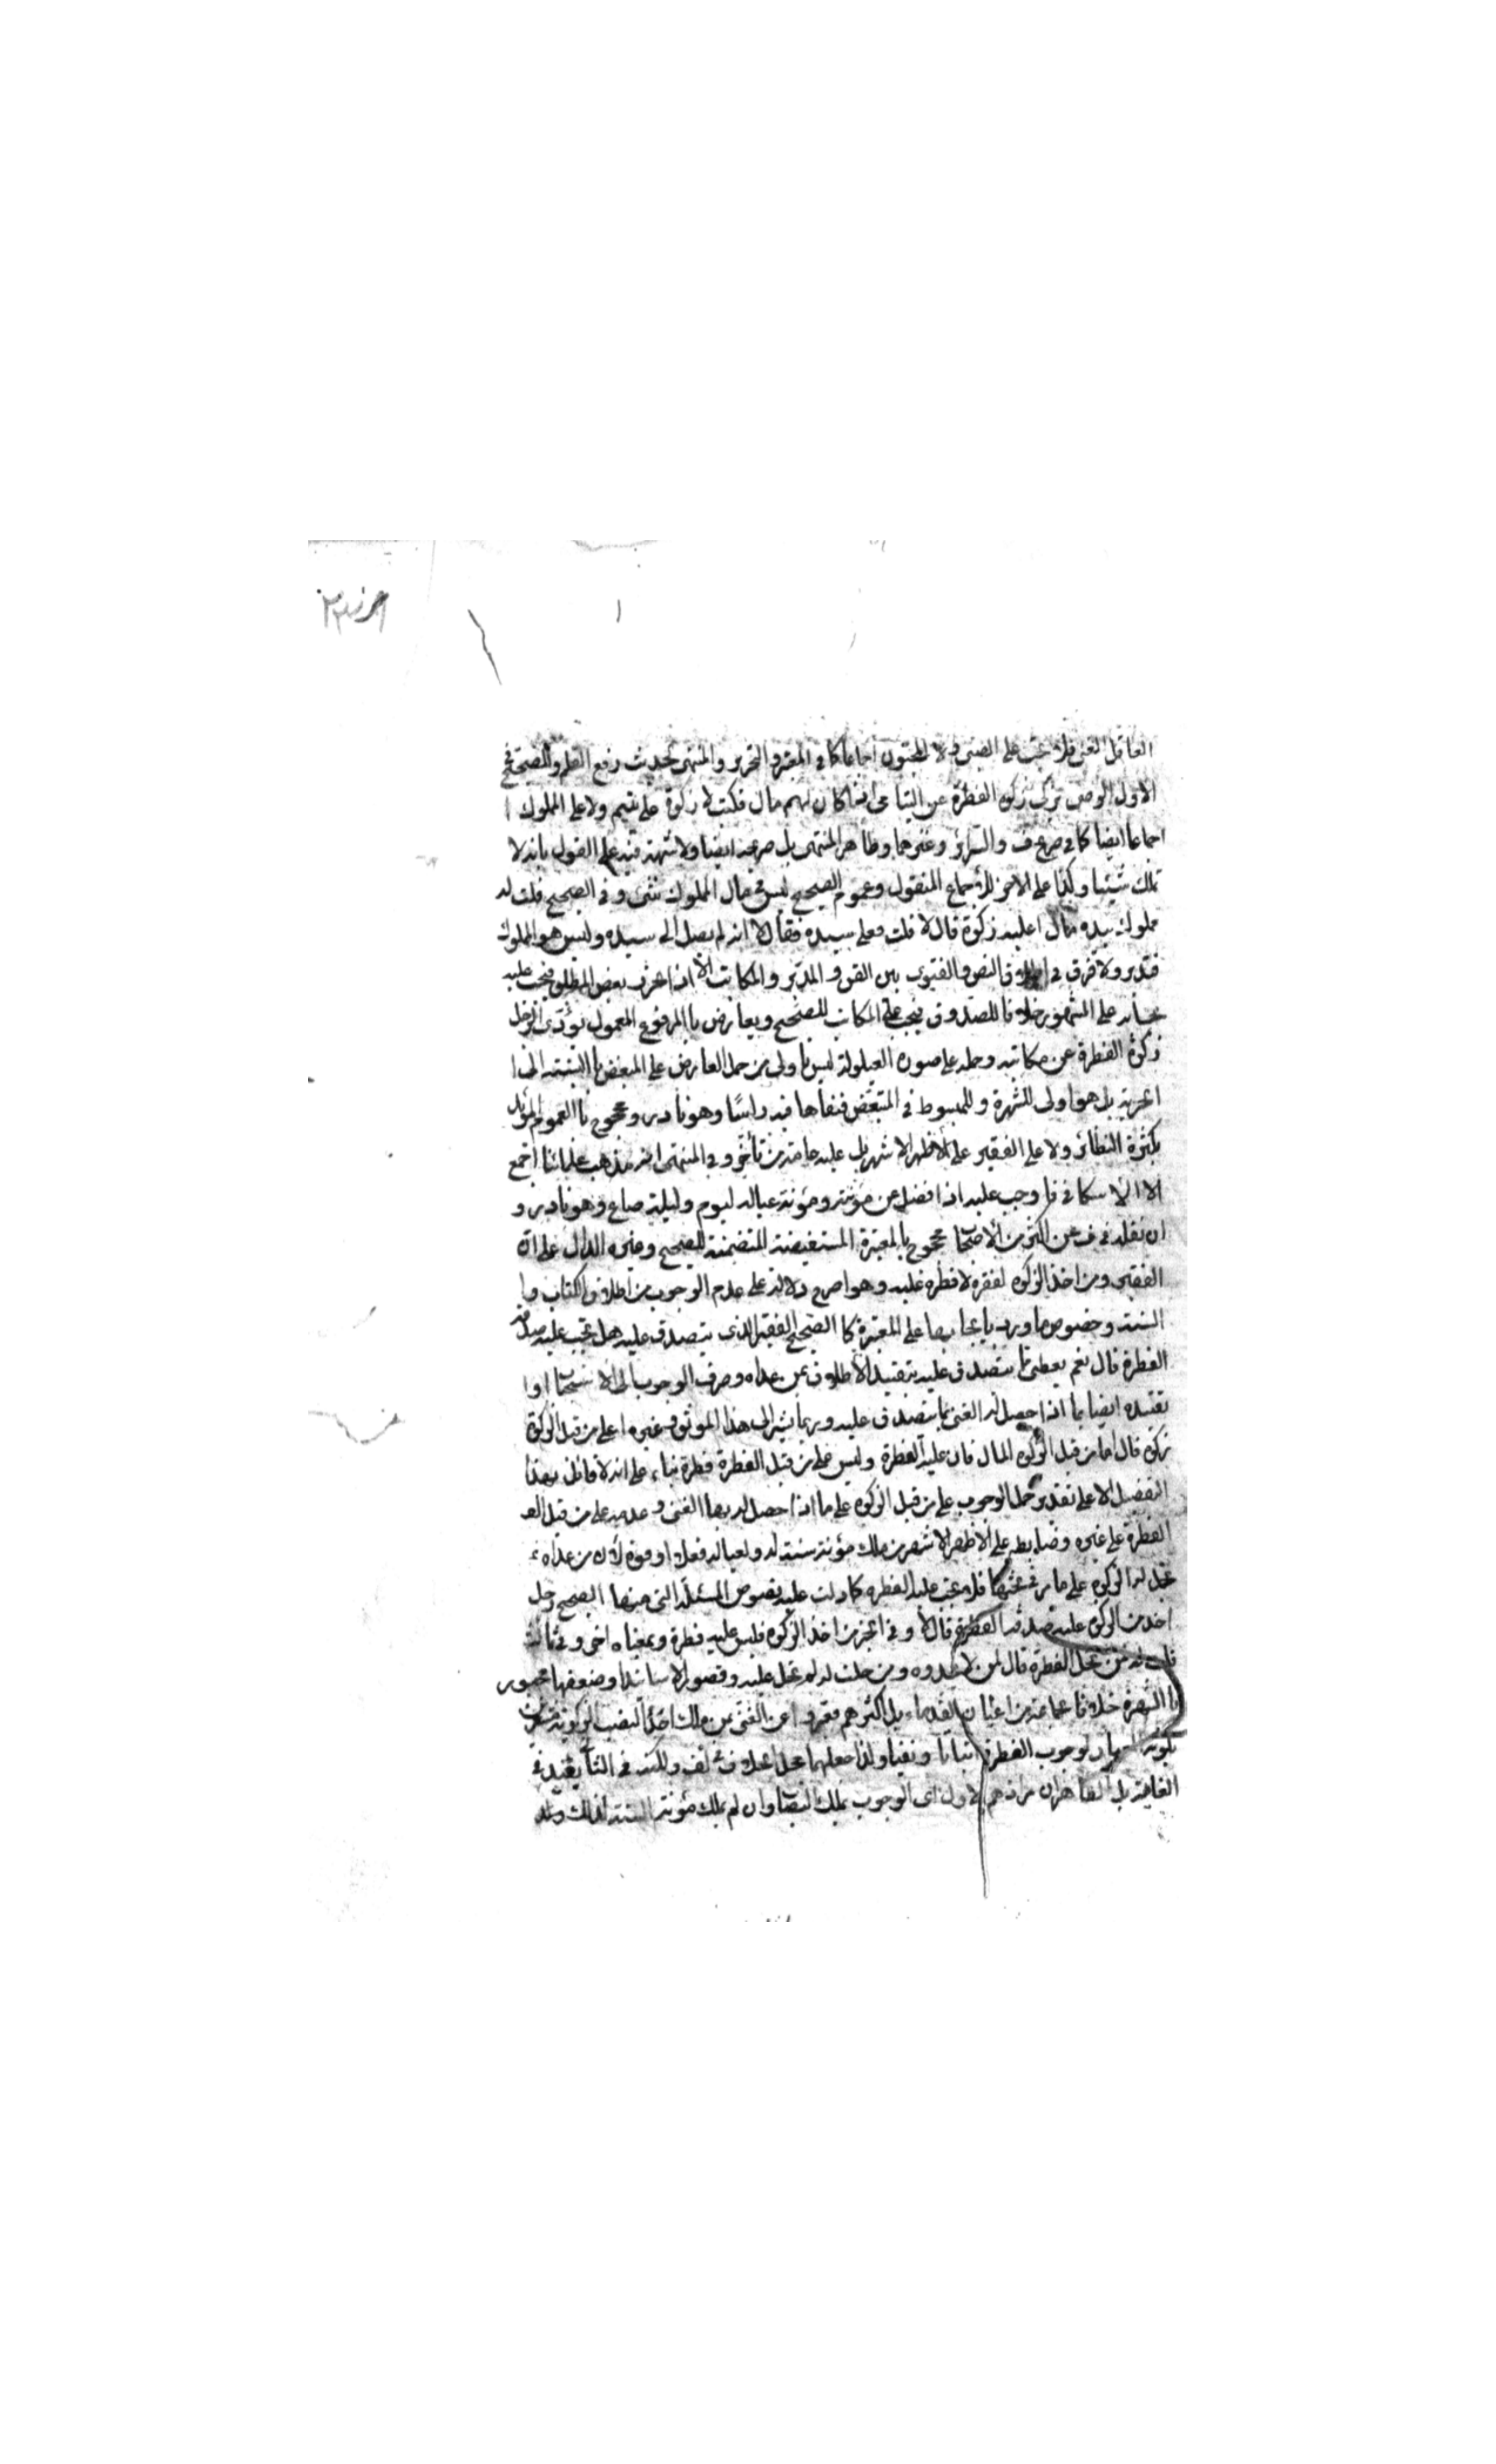 العاقل الغنى فلا تجب على الصبى ولا المجنون اجماعا كما فى المعتبر والتحرير والمنتهى لحديث رفع القلم وللصحيح فى
الاول الوصى يزكى زكوة الفطرة عن اليتامى اذا كان لهم مال فكتب لا زكوة على يتيم ولا على المملوك
اجماعا ايضا كما فى صريح ف والسرائر وغيرهما وظاهر المنتهى بل صريحه ايضا ولا شبهة فيه على القول بانه لا
يملك شيئا وكذا على الاخر للاجماع المنقول وعموم الصحيح ليس فى مال المملوك شئ وفى الصحيح قلت له
مملوك بيده مال اعليه زكوة قال لا قلت فعلى سيده فقال لا انه لم يصل الى سيده وليس هو للمملوك
فتدبر ولا فرق فى النص والفتوى بين القن والمدبر والمكاتب الا اذا تحرر بعض المطلق فتجب عليه
بحسابه على المشهور خلافا للصدوق فيجب على المكاتب للصحيح ويعارض بالمرفوع المعمول يؤدى الرجل
زكوة الفطرة عن مكاتبه وحمله على صورة العيلولة ليس باولى من حمل المعارض على المبعض بالنسبة الى
الحرية بل هو اولى للشهرة وللمبسوط فى المتبعض فنفاها فيه راسا وهو نادر ومحجوج بالعموم المؤيد
بكثرة النظائر ولا على الفقير على الاظهر الاشهر بل عليه عامة من تاخر وفى المنتهى انه مذهب علمائنا اجمع
الا الاسكافى فاوجب عليه اذا فضل عن مؤنته ومؤنة عياله ليوم وليلة صاع وهو نادر و
ان نقله فى ف عن اكثر الاصحاب محجوج بالمعتبرة المستفيضة المتضمنة للصحيح وغيره الدال على ان
الفقير ومن اخذ الزكوة لفقره لا فطرة عليه وهو اصرح دلالة على عدم الوجوب من اطلاق الكتاب و
السنة وخصوص ما ورد بايجابها على المعتبرة كالصحيح الفقير الذى يتصدق عليه هل تجب عليه صدقة
الفطرة قال نعم يعطى مما يتصدق عليه بتقييد الاطلاق بمن عداه وصرف الوجوب الى الاستحباب او
تقييده ايضا بما اذا حصل له الغنى بما يتصدق عليه وربما يشير الى هذا الموثق وغيره اعلى من قبل الزكوة
زكوة قال اما من قبل الزكوة المال فان عليه الفطرة وليس على من قبل الفطرة فطرة بناء على انه لا قائل بهذا
التفصيل الا على تقدير حمل الوجوب على من قبل الزكوة على ما اذا حصل له بها الغنى وعدمه على من قبل
الفطرة على غيره وضابطه على الاظهر الاشهر من ملك مؤنة سنة له ولعياله فعلا او قوة لان من عداه
تحل له الزكوة على ما مر فى بحثها فلا تجب عليه الفطرة كما دلت عليه نصوص المسئلة التى منها الصحيح رجل
اخذ من الزكوة عليه صدقة الفطرة قال لا وفى اخر من اخذ الزكوة فليس عليه فطرة وبمعناه اخر وفى ثالث
قلت له لمن تحل الفطرة قال لمن لا يجد ومن حلت له لم تحل عليه وقصور الاسانيد او ضعفها مجبور
بالشهرة خلافا لجماعة من اعيان القدماء بل اكثرهم فعبروا عن الغنى بمن ملك احد النصب الزكوية
الوجوب الفطرة اثباتا ونفيا ولذا جعلهما محل الخلاف ولكنه فى
الغاية بل الظاهر ان مرادهم الاول اى الوجوب بملك النصاب وان لم يملك مؤنة السنة لذلك